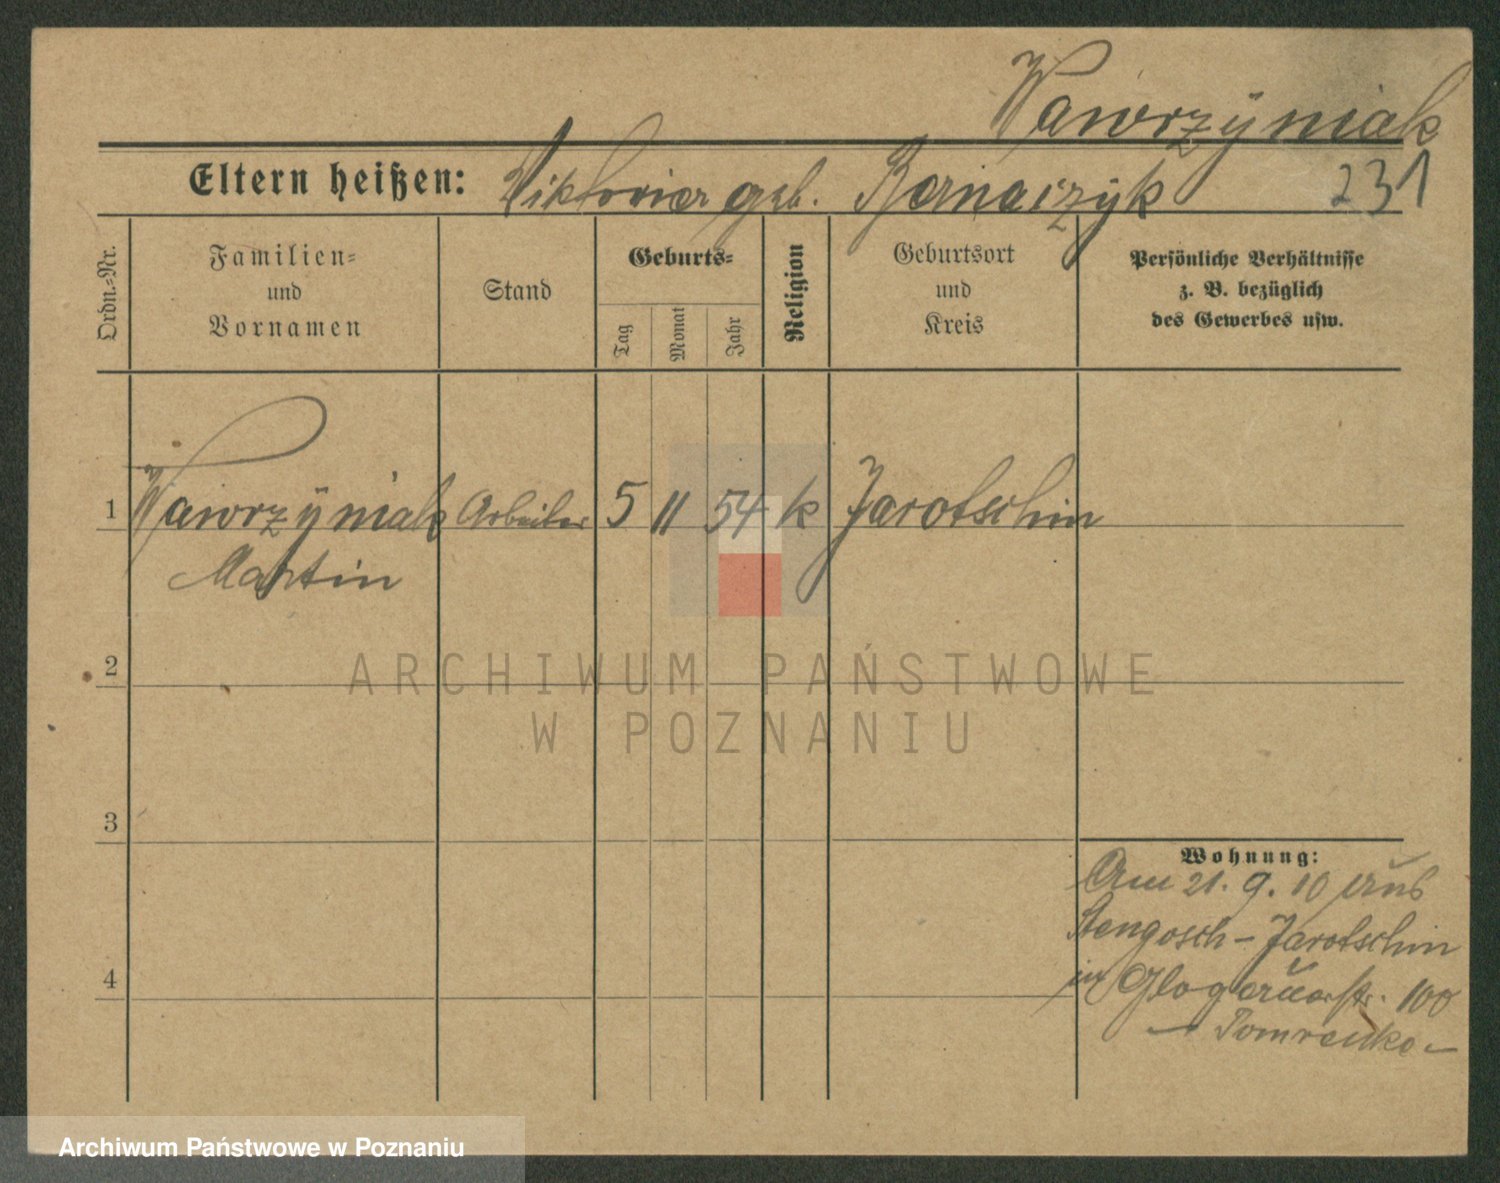 Wawrzÿniak
Eltern heißen: Viktoria geb. Bernaczÿk 231
Ordn.-Nr.
Familien-
und
Vornamen
Stand
Geburts-
Tag
Monat
Jahr
Religion
Geburtsort
und
Kreis
Persönliche Verhältnisse
z. B. bezüglich
des Gewerbes usw.
1 Wawrzÿniak Arbeiter 5 11 54 k Jarotschin
Martin
2
ARCHIWUM PAŃSTWOWE
W POZNANIU
3
Wohnung:
Am 21. 9. 10 aus
Stengosch - Jarotschin
4
in Glogauerstr. 100
Archiwum Państwowe w Poznaniu